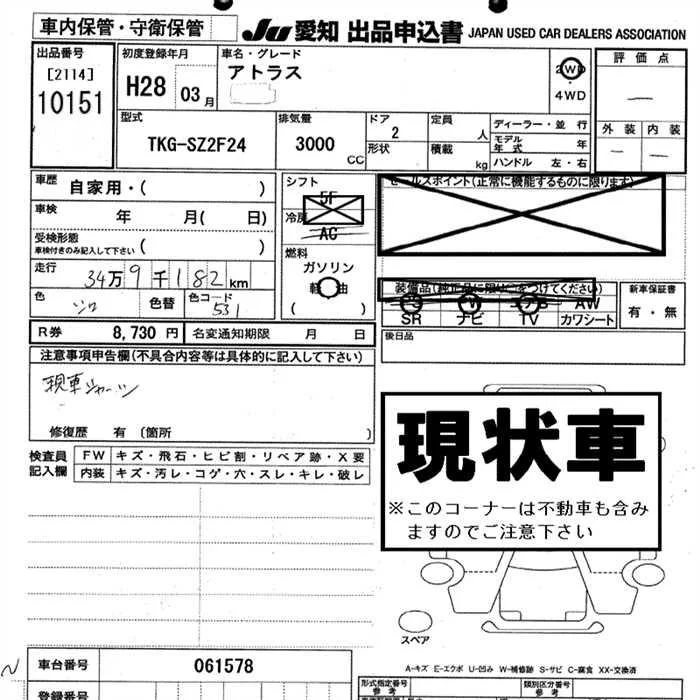 車内保管・守衛保管
JU 愛知 出品申込書 JAPAN USED CAR DEALERS ASSOCIATION
出品番号
[2114]
10151
初度登録年月
H28 03月
車名・グレード
アトラス
2WD
4WD
評価点
—
外装 内装
— —
型式
TKG-SZ2F24
排気量
3000 CC
ドア
2
形状
定員
人
積載
kg
ディーラー・並行
モデル年式 年
ハンドル 左・右
車歴 自家用・( )
車検 年 月( 日)
受検形態
車検付きのみ記入して下さい ( )
走行 34万9千182km
色 シロ 色替 色コード 531
R券 8,730 円 名変通知期限 月 日
シフト
5F
冷房
AC
燃料
ガソリン
軽油
( )
セールスポイント(正常に機能するものに限ります)
装備品(純正品に限り○をつけてください)
SR ナビ TV AW カワシート
新車保証書
有・無
後日品
注意事項申告欄(不具合内容等は具体的に記入して下さい)
現車
修復歴 有 (箇所 )
検査員記入欄
FW キズ・飛石・ヒビ割・リペア跡・X要
内装 キズ・汚レ・コゲ・穴・スレ・キレ・破レ
現状車
※このコーナーは不動車も含み
ますのでご注意下さい
スペア
A-キズ E-エクボ U-凹み W-補修跡 S-サビ C-腐食 XX-交換済
車台番号 061578
登録番号
形式指定番号
参考
類別区分番号
参考